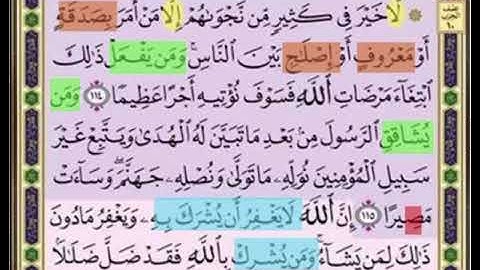 نصف الحزب ١٠
لَّا خَيْرَ فِي كَثِيرٍ مِّن نَّجْوَىٰهُمْ إِلَّا مَنْ أَمَرَ بِصَدَقَةٍ
أَوْ مَعْرُوفٍ أَوْ إِصْلَٰحٍ بَيْنَ النَّاسِ وَمَن يَفْعَلْ ذَٰلِكَ
ابْتِغَآءَ مَرْضَاتِ اللَّهِ فَسَوْفَ نُؤْتِيهِ أَجْرًا عَظِيمًا ١١٤ وَمَن
يُشَاقِقِ الرَّسُولَ مِنۢ بَعْدِ مَا تَبَيَّنَ لَهُ الْهُدَىٰ وَيَتَّبِعْ غَيْرَ
سَبِيلِ الْمُؤْمِنِينَ نُوَلِّهِۦ مَا تَوَلَّىٰ وَنُصْلِهِۦ جَهَنَّمَ ۖ وَسَآءَتْ
مَصِيرًا ١١٥ إِنَّ اللَّهَ لَا يَغْفِرُ أَن يُشْرَكَ بِهِۦ وَيَغْفِرُ مَا دُونَ
ذَٰلِكَ لِمَن يَشَآءُ ۚ وَمَن يُشْرِكْ بِاللَّهِ فَقَدْ ضَلَّ ضَلَٰلًۢا